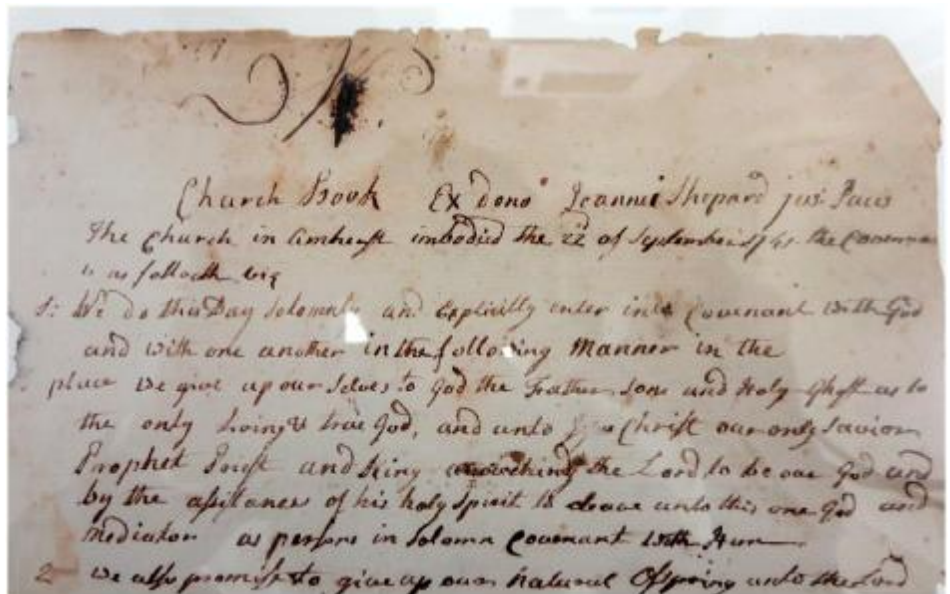 Church Book Ex dono Shepard
The Church in Amherst imbodied the 22d of September 1741 the Covenan
is as folloeth viz
1: We do this Day Solemnly and Explicitly enter into Covenant with God
and with one another in the following Manner in the
place We give up our Selves to God the Father Sone and Holy Ghost as to
the only Living & true God, and unto Christ our only Savior
Prophet Preist and King the Lord to be our God and
by the assistance of his holy Spirit to cleave unto this one God and
Mediator as persons in Solemn Covenant With Him
2 We also promise to give up our Natural Ofspring unto the Lord